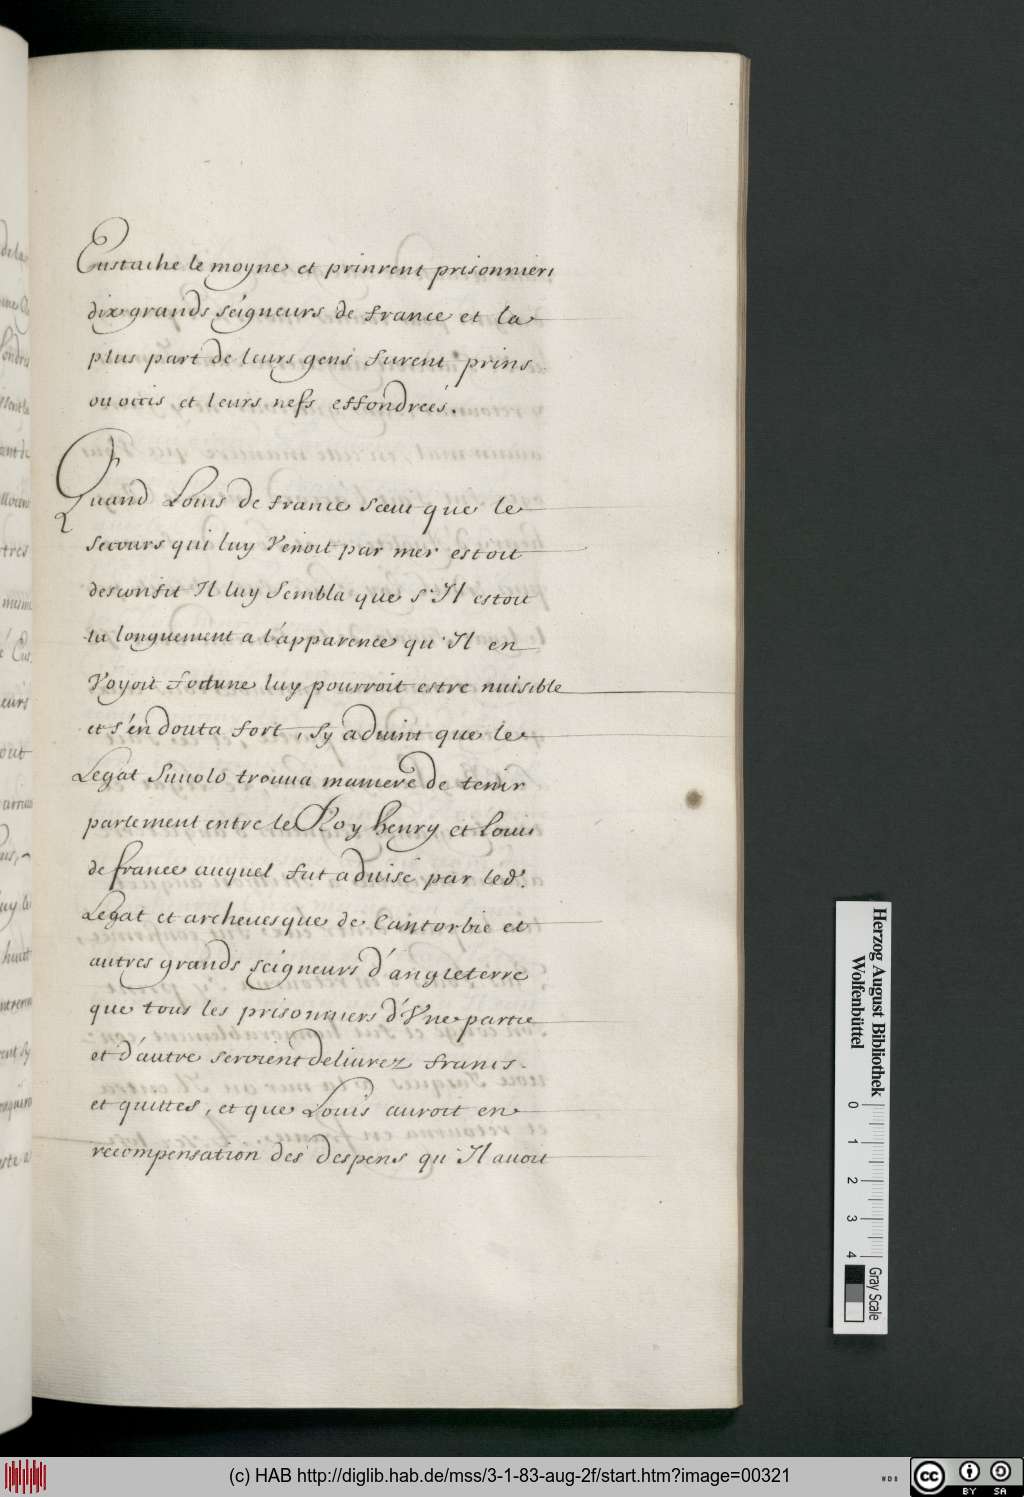 Eustache le moyne et prinrent prisonniers
dix grands seigneurs de france et la
plus part de leurs gens furent prins
ou occis et leurs nefs effondrées.
Quand Louis de france sceut que le
secours qui luy Venoit par mer estoit
desconfit Il luy sembla que s'Il estoit
la longuement a l'apparence qu'Il en
Voyoit fortune luy pourroit estre nuisible
et s'en douta fort, sy aduint que le
Legat trouua maniere de tenir
parlement entre le Roy henry et louis
de france auquel fut aduisé par led.
Legat et archeuesque de Cantorbie et
autres grands seigneurs d'angleterre
que tous les prisonniers d'Vne partie
et d'autre seroient deliurez francs
et quittes, et que Louis auroit en
recompensation des despens qu'Il auoit
Herzog August Bibliothek
Wolfenbüttel
0 1 2 3 4
Gray Scale
(c) HAB http://diglib.hab.de/mss/3-1-83-aug-2f/start.htm?image=00321
cc BY SA